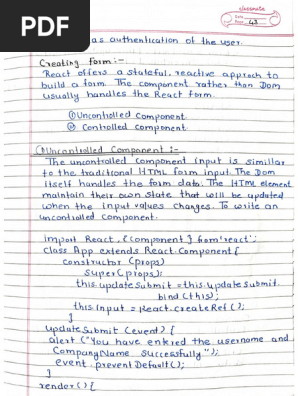 PDF
classmate
Date
Page 43
as authentication of the user.
Creating form:-
React offers a stateful, reactive approch to
build a form. The component rather than Dom
usually handles the React form.
① Uncontrolled component
② Controlled component
① Uncontrolled Component :-
The uncontrolled component input is simillar
to the traditional HTML form input. The Dom
itself handles the form data. The HTML element
maintain their own state that will be updated
when the input values changes. To write an
uncontrolled component.
import React, {component} from 'react';
class App extends React.Component{
constructor (props)
super(props);
this.updateSubmit = this.updateSubmit.
bind(this);
this.input = React.createRef();
}
updateSubmit (event) {
alert ("You have entered the username and
CompanyName successfully");
event.preventDefault();
}
render() {